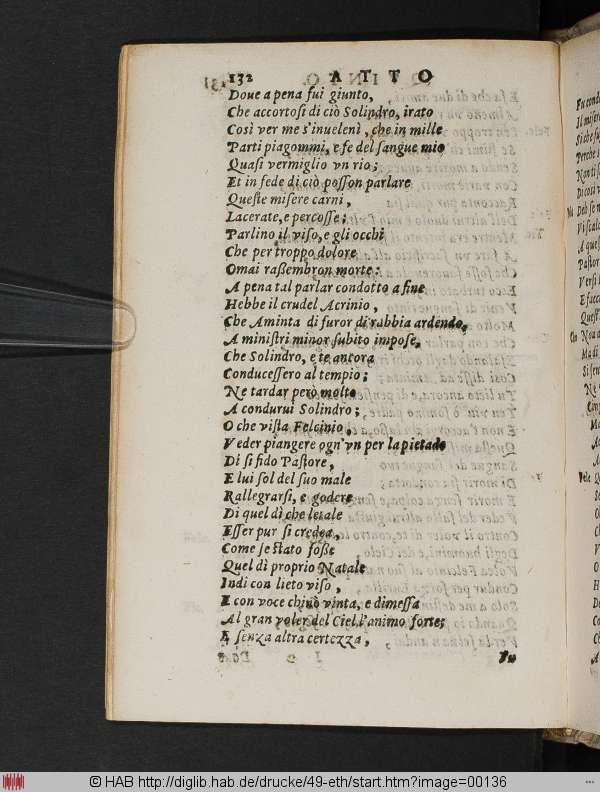 132 ATTO
Doue a pena fui giunto,
Che accortosi di ciò Solindro, irato
Così ver me s'inuelenì, che in mille
Parti piagommi, e fe del sangue mio
Quasi vermiglio vn rio;
Et in fede di ciò posson parlare
Queste misere carni,
Lacerate, e percosse;
Parlino il viso, e gli occhi
Che per troppo dolore
Omai raßembron morte:
A pena tal parlar condotto a fine
Hebbe il crudel Acrinio,
Che Aminta di furor di rabbia ardendo,
A ministri minor subito impose,
Che Solindro, e te ancora
Conducessero al tempio;
Ne tardar però molto
A condurui Solindro;
O che vista Felcinio,
Veder piangere ogn'vn per la pietade
Di sì fido Pastore,
E lui sol del suo male
Rallegrarsi, e godere
Di quel dì che letale
Esser pur si credea,
Come se stato foße
Quel dì proprio Natale
Indi con lieto viso,
E con voce chinò vinta, e dimessa
Al gran voler del Ciel l'animo forte;
E senza altra certezza,
© HAB http://diglib.hab.de/drucke/49-eth/start.htm?image=00136